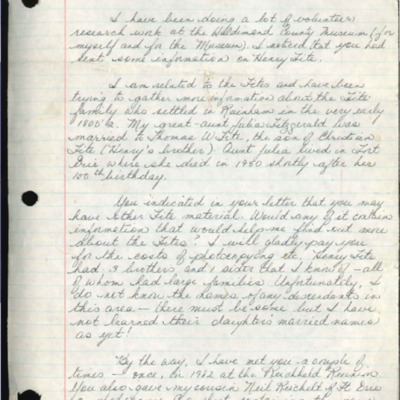 I have been doing a lot of volunteer
research work at the Haldimand County Museum (for
myself and for the Museum). I noticed that you had
sent some information on Henry Fite.
I am related to the Fites and have been
trying to gather more information about the Fite
family who settled in Rainham in the very early
1800's. My great-aunt Julia Fitzgerald
married to Thomas W. Fite, the son of Christian
Fite (Henry's brother). Aunt Julia lived in Fort
Erie where she died in 1950 shortly after her
100th birthday.
You indicated in your letter that you may
have other Fite material. Would any of it contain
information that would help me find out more
about the Fites? I will gladly pay you
for the costs of photocopying etc. Henry Fite
had 3 brothers, and 1 sister that I know of - all
of whom had large families. Unfortunatly, I
do not know the names of any descendants in
this area - there must be some but I have
not learned their daughters married names
as yet!
By the way, I have met you a couple of
times - once, in 1982 at the Reichheld Reunion.
You also gave my cousin Neil Reicheld of Ft. Erie